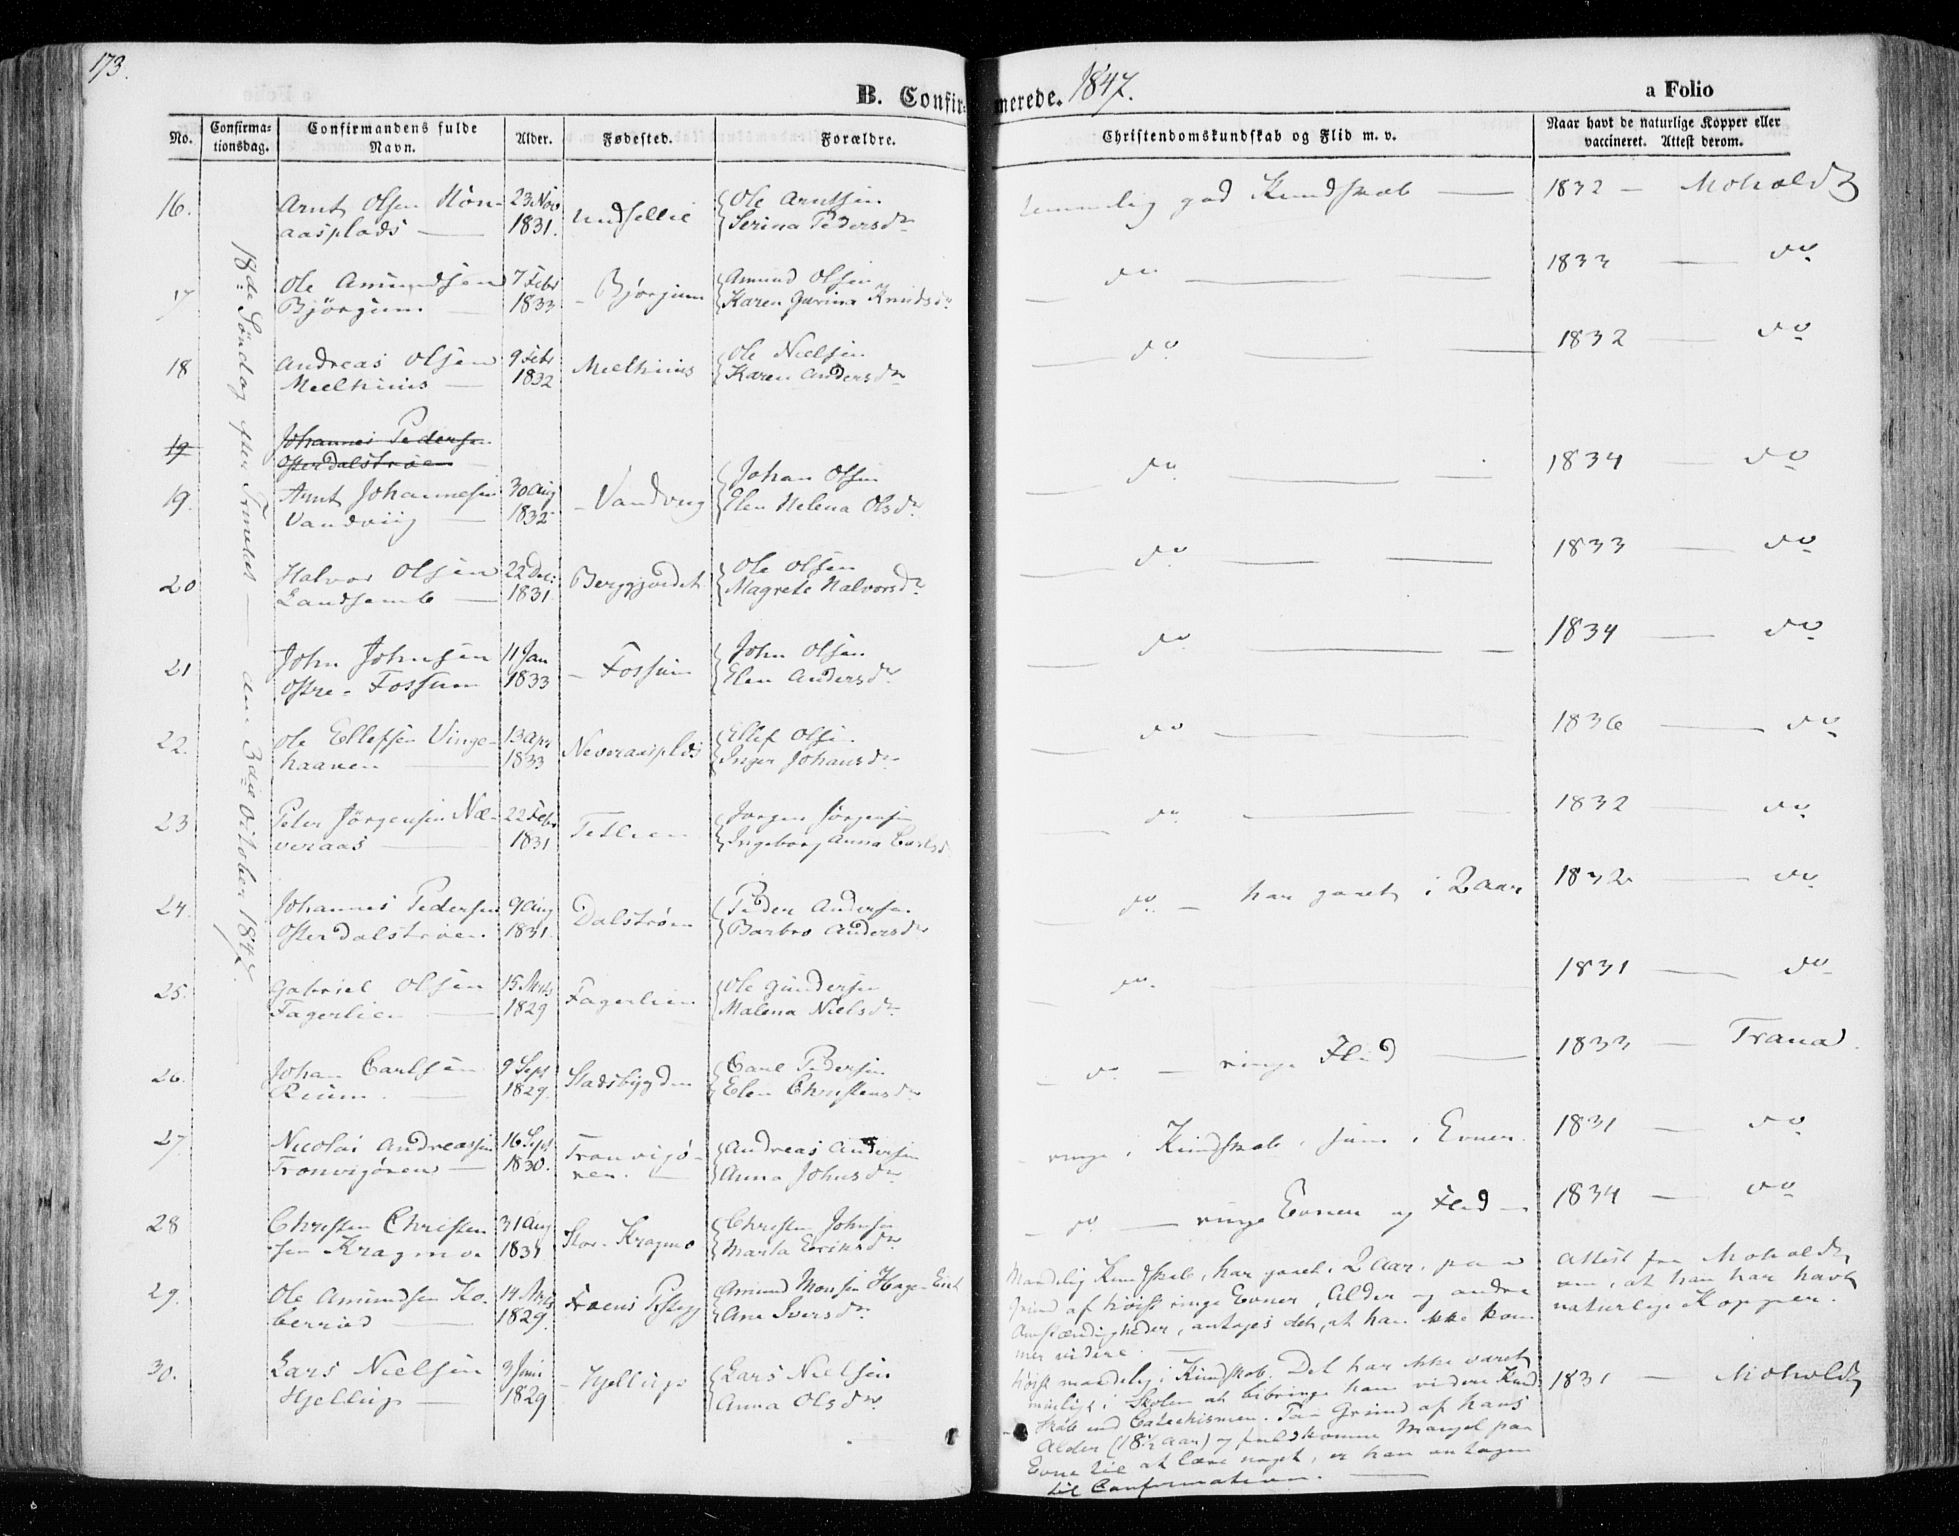 173.
B. Confirmerede. 1847.
a Folio
No.
Confirmationsdag.
Confirmandens fulde Navn.
Alder.
Fødested.
Forældre.
Christendomskundskab og Flid m. v.
Naar havt de naturlige Kopper eller vaccineret. Attest derom.
18de Søndag efter Trinitet — den 3die October 1847.
16. Arnt Olsen Høn- 23 Nov Ole Arntsen temmelig god Kundskab — 1832 — Moholdt
aasplads — 1831. Serina Pedersdr
17 Ole Amundsen 7 Febr Bjørgum Amund Olsen do 1833 — do
Bjørgum — 1833 Karen Gurina Knudsdr
18 Andreas Olsen 9 Febr Meelhuus Ole Nielsen do 1832 — do
Meelhuus — 1832 Karen Andersdr
19 Johannes Pedersen
Østerdalstrøen
19. Arnt Johannesen 30 Aug Vandvug Johan Olsen do 1834 — do
Vandviig — 1832 Elen Helena Olsdr
20 Halvor Olsen 22 Dec: Berggjerdet Ole Olsen do 1833 — do
Landsemb — 1831 Magrete Halvorsdr
21 John Johnsen 11 Jan — Fossum John Olsen do 1834 — do
Østre-Fossum 1833 Elen Andersdr
22. Ole Ellefsen Vinge- 13 Apr Neveraasplds Ellef Olsen do 1836 — do
haaven — 1833 Inger Johansdr
23 Peter Jørgensen Næ- 22 Febr Teslien Jørgen Jørgensen do 1832 — do
veraas — 1831 Ingeborg Anna Carlsd
24. Johannes Pedersen 9 Aug Dalstrøen Peder Andersen do — har gaaet i 2 Aar 1832 — do
Østerdalstrøen. 1831. Barbro Andersdr
25. Gabriel Olsen 15 Mrts Fagerlien Ole Gundersen do 1831 — do
Fagerlien — 1829 Malena Nielsdr
26. Johan Carlsen 9 Sept Stadsbygden Carl Pedersen do — ringe Flid — 1833 — Trana
Rium. — 1829. Elen Christensdr
27. Nicolai Andreassen 16 Sept Tronvigø- Andreas Andersen ringe i Kundskab, svag i Evner. 1831 — do
Tronvigøren — 1830. ren. — Anna Johnsdr
28 Christen Christen- 31 Aug Stor-Kragmo Christen Johnsen do — ringe Evner og Flid — 1834 — do
sen Kragmo. 1831 Marta Eriksdr
29. Ole Amundsen Ko- 14 Mrts Amund Monsen Hagen
berried — 1829. Ane Iversdr
Maadelig Kundskab, har gaaet i 2 Aar, paa
Grund af høist ringe Evner, Alder og andre
Omstændigheder, antages det, at han ikke kom-
mer videre. —
Attest fra Moholdt
om, at han har havt
naturlige Kopper.
30. Lars Nielsen 3 Juni — Hjellup Lars Nielsen 1831 — Moholdt
Hjellup — 1829 Anna Olsdr
høist maadelig i Kundskab. Det har ikke været
muligt i Skolen at bibringe ham videre Kund-
skab end Catechismen. Paa Grund af hans
Alder (18½ Aar) og fuldkomne Mangel paa
Evne til at lære noget, er han antagen
til Confirmation. —